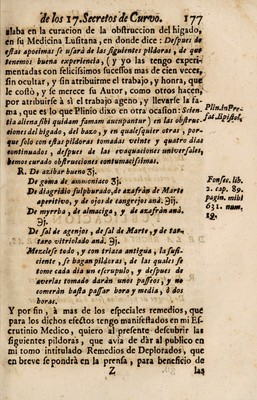 de los 17. Secretos de Curvo. 177
alaba en la curacion de la obstruccion del higado,
en su Medicina Lusitana, en donde dice: Despues de
estas apozimas se usará de las siguientes pildoras de que
tenemos buena experiencia, (y yo las tengo experi-
mentadas con felicisimos sucesos mas de cien veces,
sin ocultar, y sin atribuirme el trabajo, y honra, que
le costò, y se merece su Autor, como otros hacen,
por atribuirse à sì el trabajo ageno, y llevarse la fa-
ma, que es lo que Plinio dixo en otra ocasion: Scien-
tia aliena sibi quidam famam aucupantur) en las obstruc-
ciones del higado, del bazo, y en qualesquier otras, por-
que solo con estas pildoras tomadas veinte y quatro dias
continuados, despues de las evacuaciones universales,
hemos curado obstrucciones contumacisimas.
Plin. in Pre-
fat. Epistol.
R. De azibar bueno ʒj.
De goma de ammoniaco ʒj.
De diagridio sulphurado, de azafràn de Marte
aperitivo, y de ojos de cangrejos anà. ℈ij.
De myrrha, de almaciga, y de azafràn anà.
℈j.
De sal de agenjos, de sal de Marte, y de tar-
taro vitriolado anà. ℈j.
Mezclese todo, y con triaca antigua, la sufi-
ciente, se hagan pildoras, de las quales se
tome cada dia un escrupulo, y despues de
averlas tomado daràn unos paseos, y no
comeràn hasta passar hora y media, ò dos
horas.
Fonsec. lib.
2. cap. 89.
pagin. mihi
631. num.
12.
Y por fin, à mas de los especiales remedios, que
para los dichos efectos tengo manifestados en mi Es-
crutinio Medico, quiero al presente descubrir las
siguientes pildoras, que avia de dàr al publico en
mi tomo intitulado Remedios de Deplorados, que
en breve se pondrà en la prensa, para beneficio de
Z las